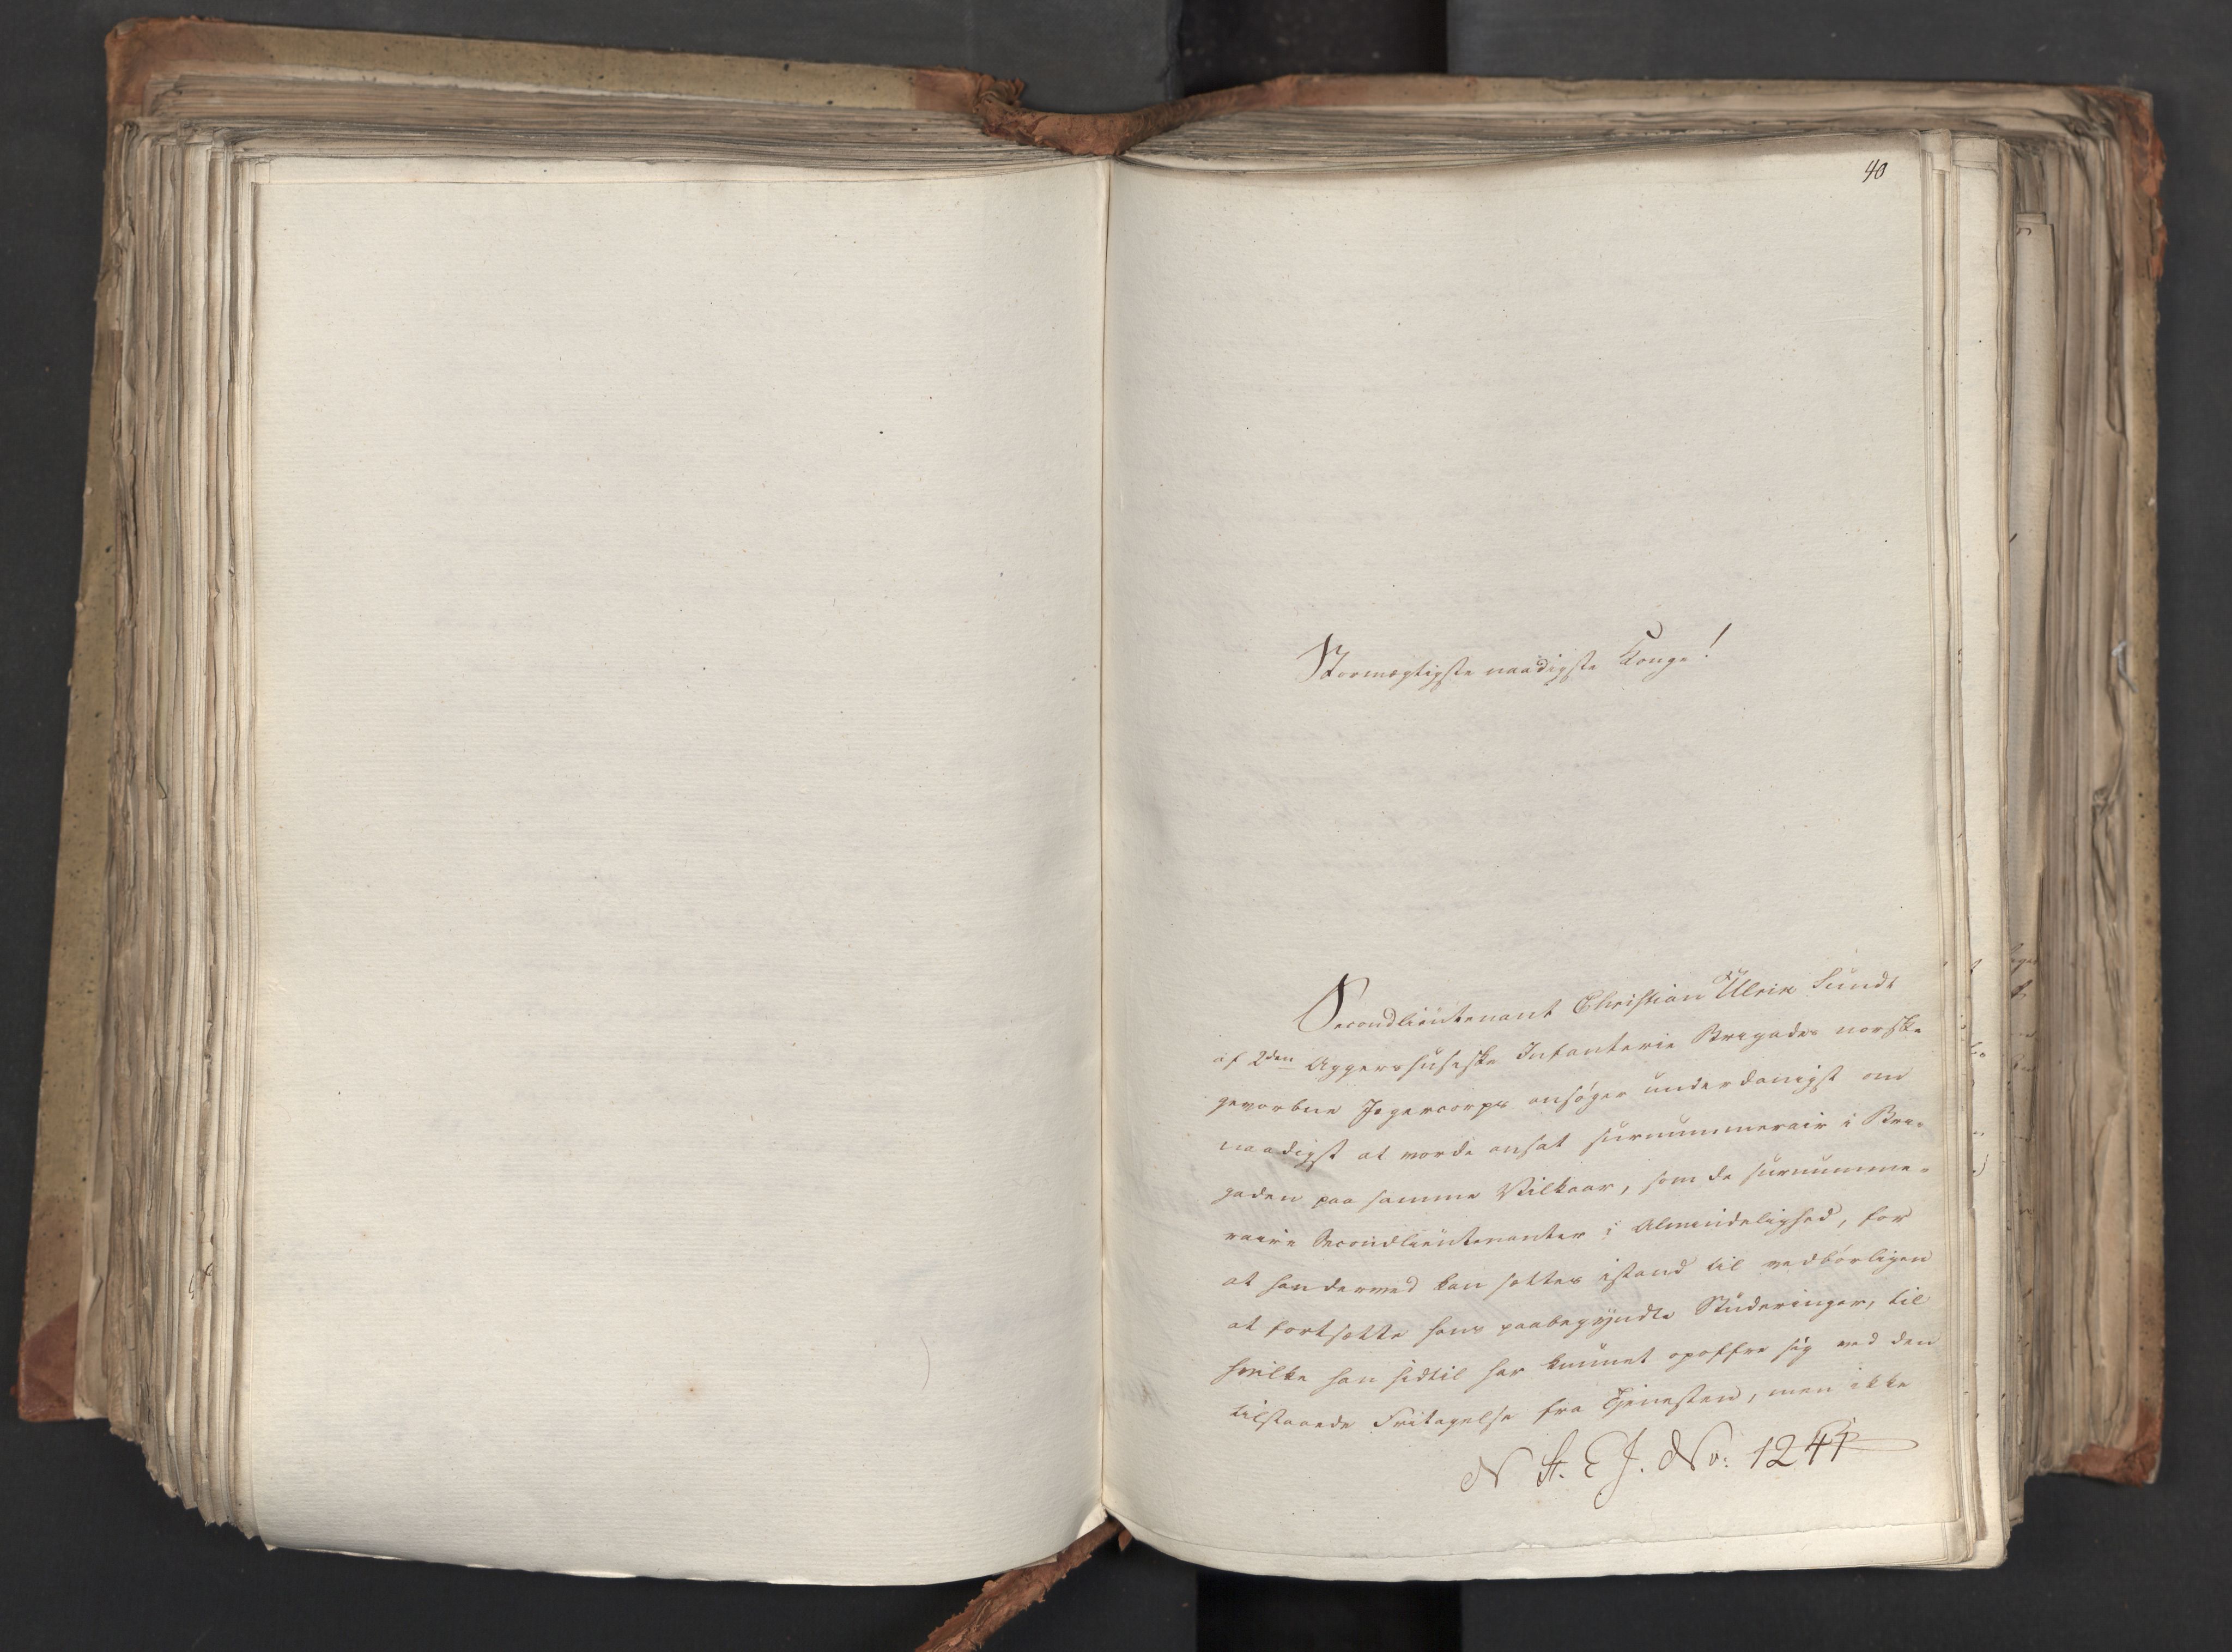 40
Stormægtigste naadigste Konge!
Secondlieutenant Christian Ulrik Sundt
af 2den Aggershusiske Infanterie Brigades norske
gevorbne Jegercorps ansøger underdanigst om
naadigst at vorde ansat surnummerair i Bri-
gaden paa samme Vilkaar, som de surnumme-
raire Secondlieutenanter i Almindelighed, for
at han derved kan sættes istand til vedbørligen
at fortsætte hans paabegyndte Studeringer, til
hvilke han hidtil har kunnet opoffre sig ved den
tilstaaede Fritagelse fra Tjenesten, men ikke
N St. E J. No: 1241